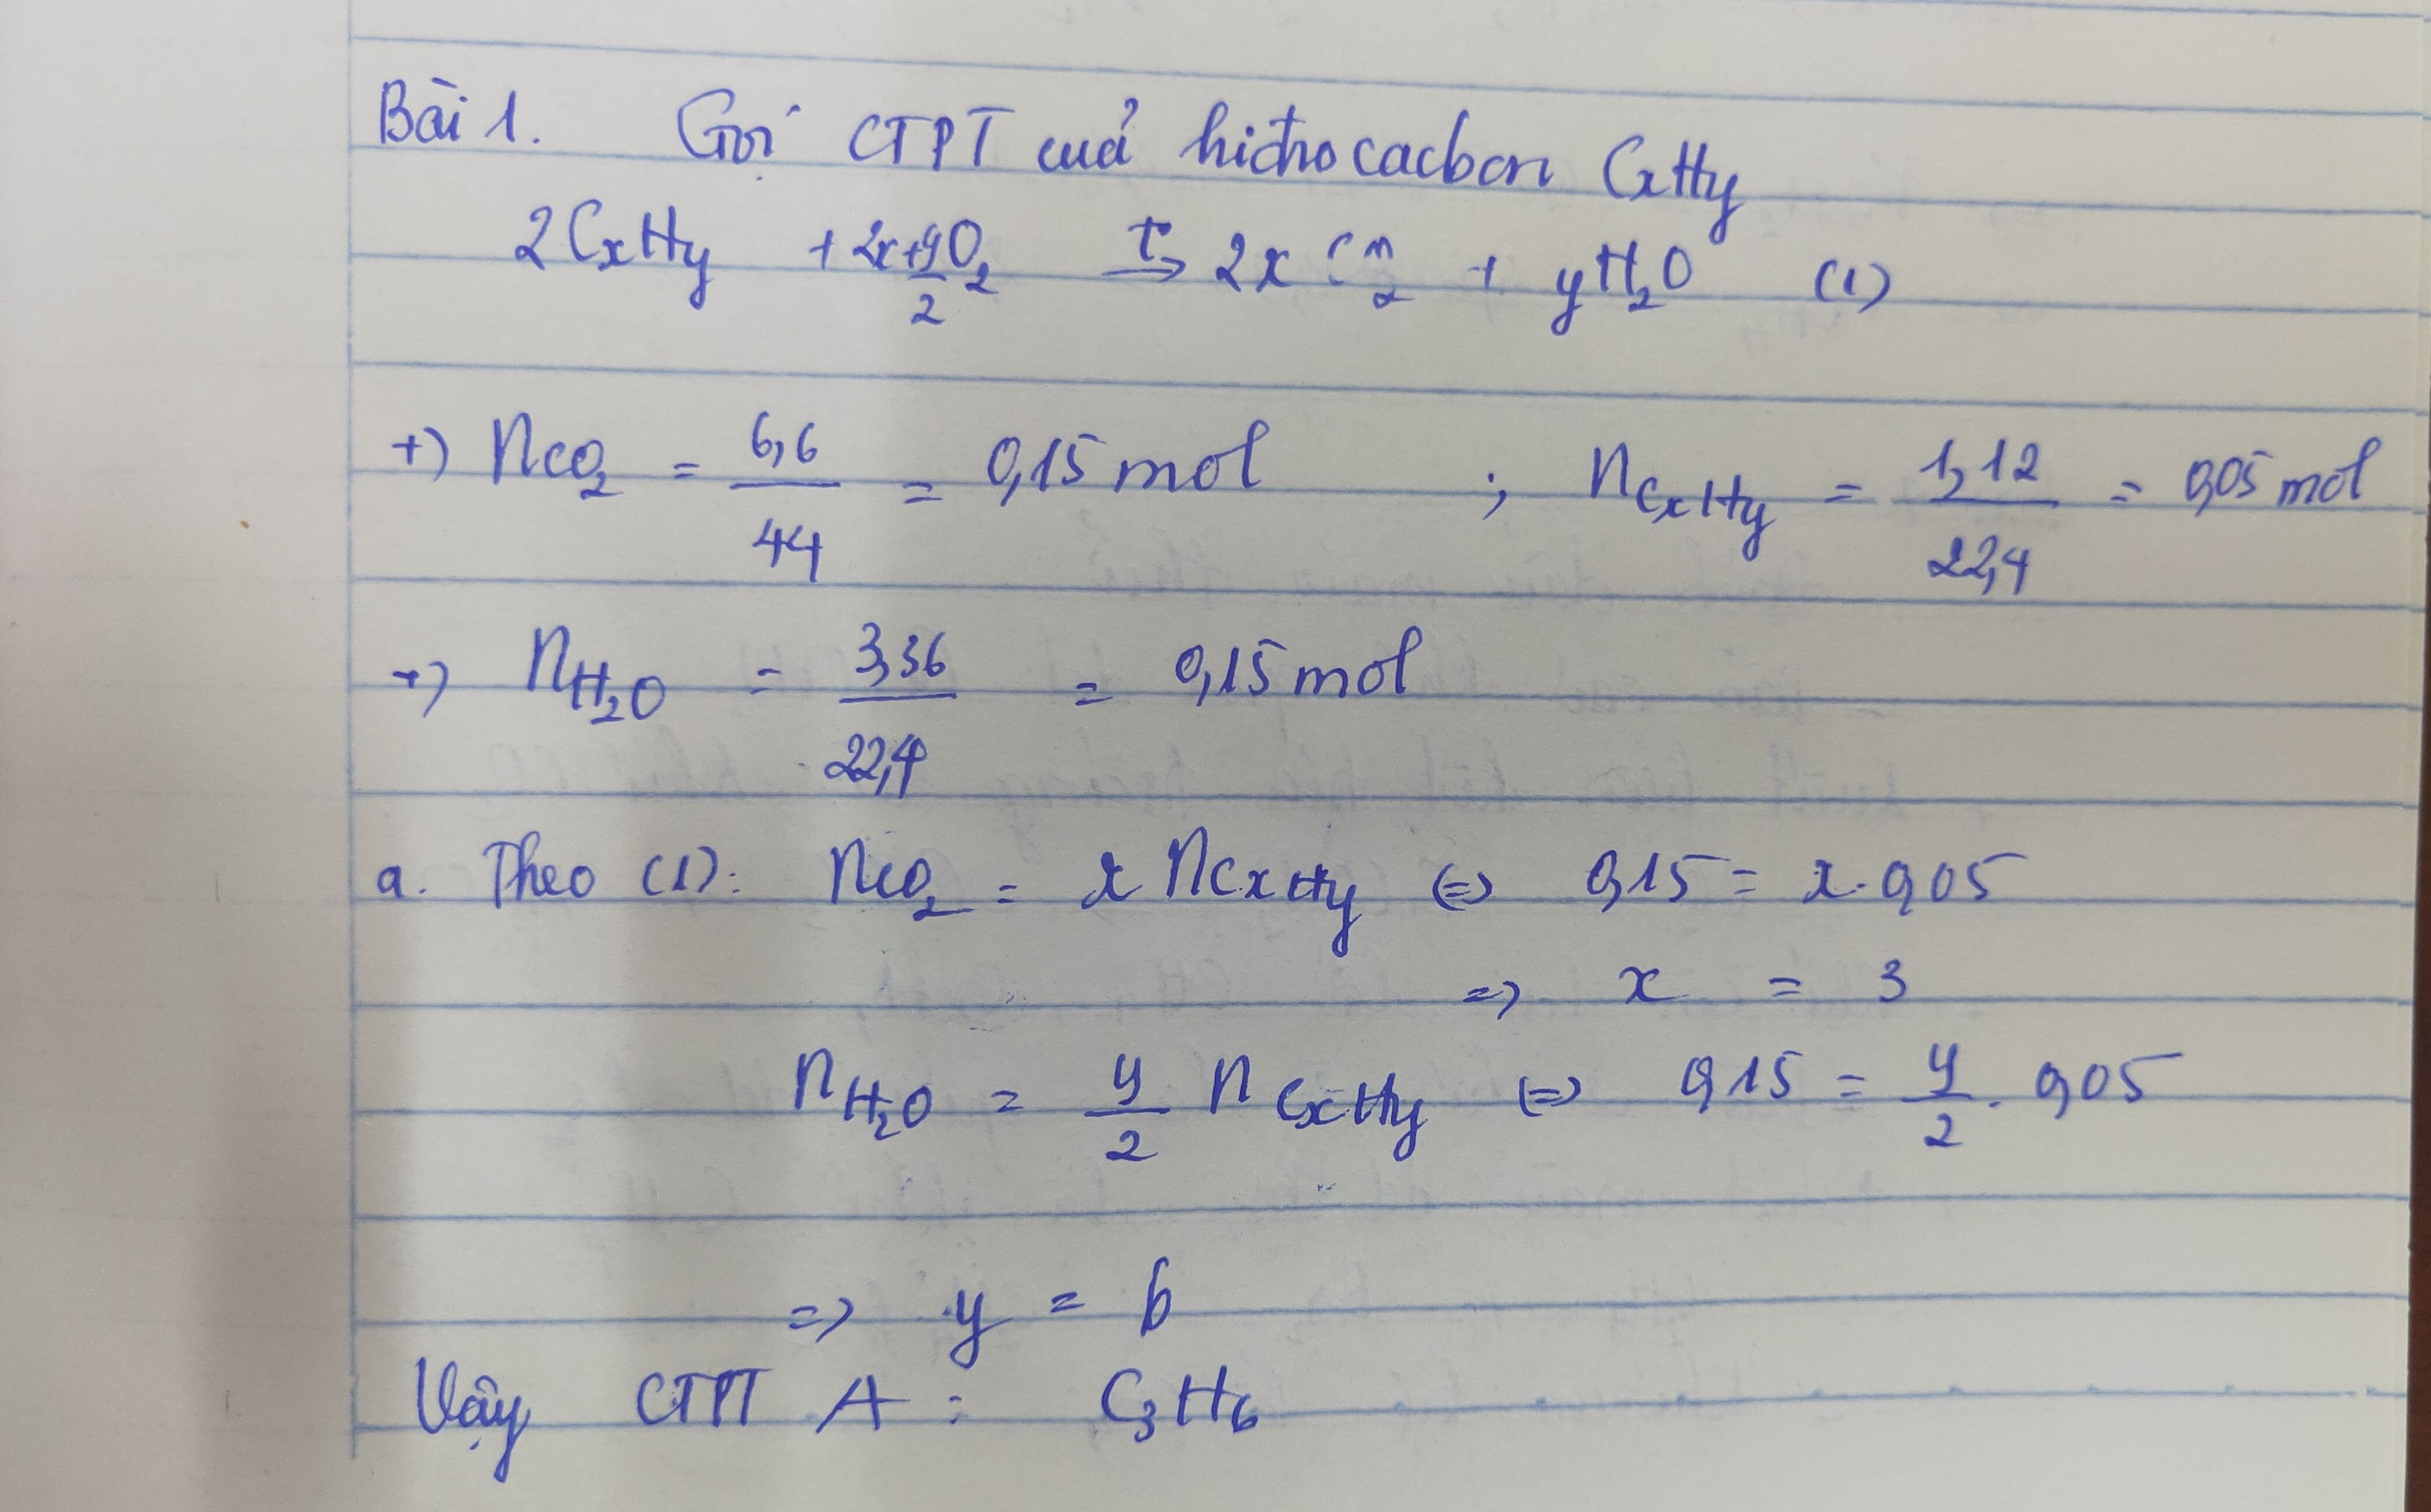 Bài 1. Gọi CTPT cuả hiđrocacbon CxHy
2CxHy + 2x+y/2 O₂ t°→ 2x CO₂ + yH₂O (1)
+) nCO₂ = 6,6/44 = 0,15 mol ; nCxHy = 1,12/22,4 = 0,05 mol
+) nH₂O = 3,36/22,4 = 0,15 mol
a. Theo (1): nCO₂ = x nCxHy (=) 0,15 = x . 0,05
=> x = 3
nH₂O = y/2 nCxHy (=) 0,15 = y/2 . 0,05
=> y = 6
Vậy CTPT A : C₃H₆